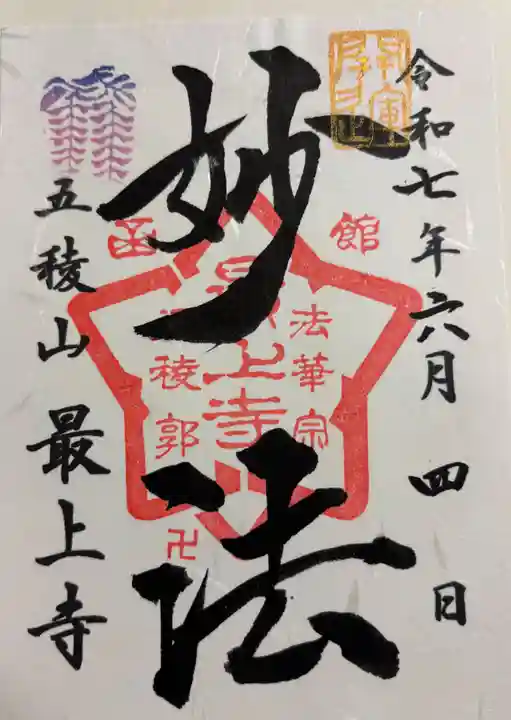 令和七年六月四日
妙法
五稜山 最上寺
函館
法華宗
最上寺
稜郭
卍